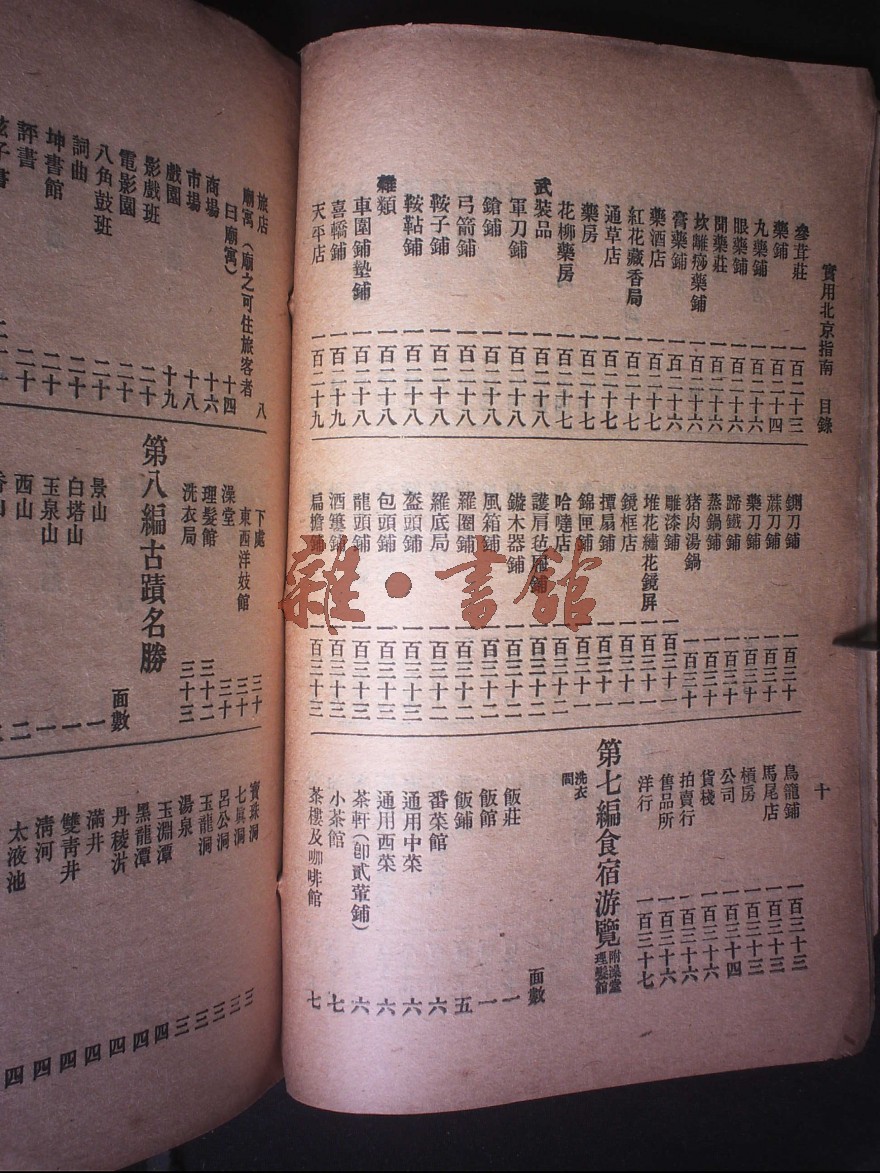 實用北京指南 目錄
十
參茸莊 一百二十三
藥鋪 一百二十四
丸藥鋪 一百二十六
眼藥鋪 一百二十六
閉藥莊 一百二十六
坎離痧藥鋪 一百二十六
膏藥鋪 一百二十六
藥酒店 一百二十七
紅花藏香局 一百二十七
通草店 一百二十七
藥房 一百二十七
花柳藥房 一百二十七
武裝品 一百二十八
軍刀鋪 一百二十八
鎗鋪 一百二十八
弓箭鋪 一百二十八
鞍子鋪 一百二十八
鞍韂鋪 一百二十八
雜類
車圍鋪墊鋪 一百二十八
喜轎鋪 一百二十九
天平店 一百二十九
鍘刀鋪 一百三十
蔴刀鋪 一百三十
藥刀鋪 一百三十
蹄鐵鋪 一百三十
蒸鍋鋪 一百三十
猪肉湯鍋 一百三十
雕漆鋪 一百三十一
堆花繡花鏡屏 一百三十一
鏡框店 一百三十一
撢扇鋪 一百三十一
錦匣鋪 一百三十一
哈噠店 一百三十二
護肩毡 一百三十二
鏇木器鋪 一百三十二
風箱鋪 一百三十二
羅圈鋪 一百三十二
羅底局 一百三十二
盔頭鋪 一百三十三
包頭鋪 一百三十三
龍頭鋪 一百三十三
酒簍鋪 一百三十三
扁擔鋪 一百三十三
鳥籠鋪 一百三十三
馬尾店 一百三十三
槓房 一百三十三
公司 一百三十四
貨棧 一百三十六
拍賣行 一百三十六
售品所 一百三十六
洋行 一百三十七
第七編食宿游覽 附澡堂理髮館洗衣局
面數
飯莊 一
飯館 一
飯鋪 五
番菜館 六
通用中菜 六
通用西菜 六
茶軒(卽貳葷鋪) 六
小茶館 七
茶樓及咖啡館 七
旅店 八
廟寓(廟之可住旅客者曰廟寓) 十四
商場 十六
市場 十八
戲園 十九
影戲班 二十
電影園 二十
八角鼓班 二十
詞曲 二十
坤書館 二十
評書
下處 三十
東西洋妓館 三十
澡堂 三十
理髮館 三十二
洗衣局 三十三
第八編古蹟名勝
面數
景山 一
白塔山 一
玉泉山 一
西山 二
寶珠洞 三
七眞洞 三
呂公洞 三
玉龍洞 三
湯泉 三
玉淵潭 四
黑龍潭 四
丹稜沜 四
滿井 四
雙青井 四
清河 四
太液池 四
雜·書館